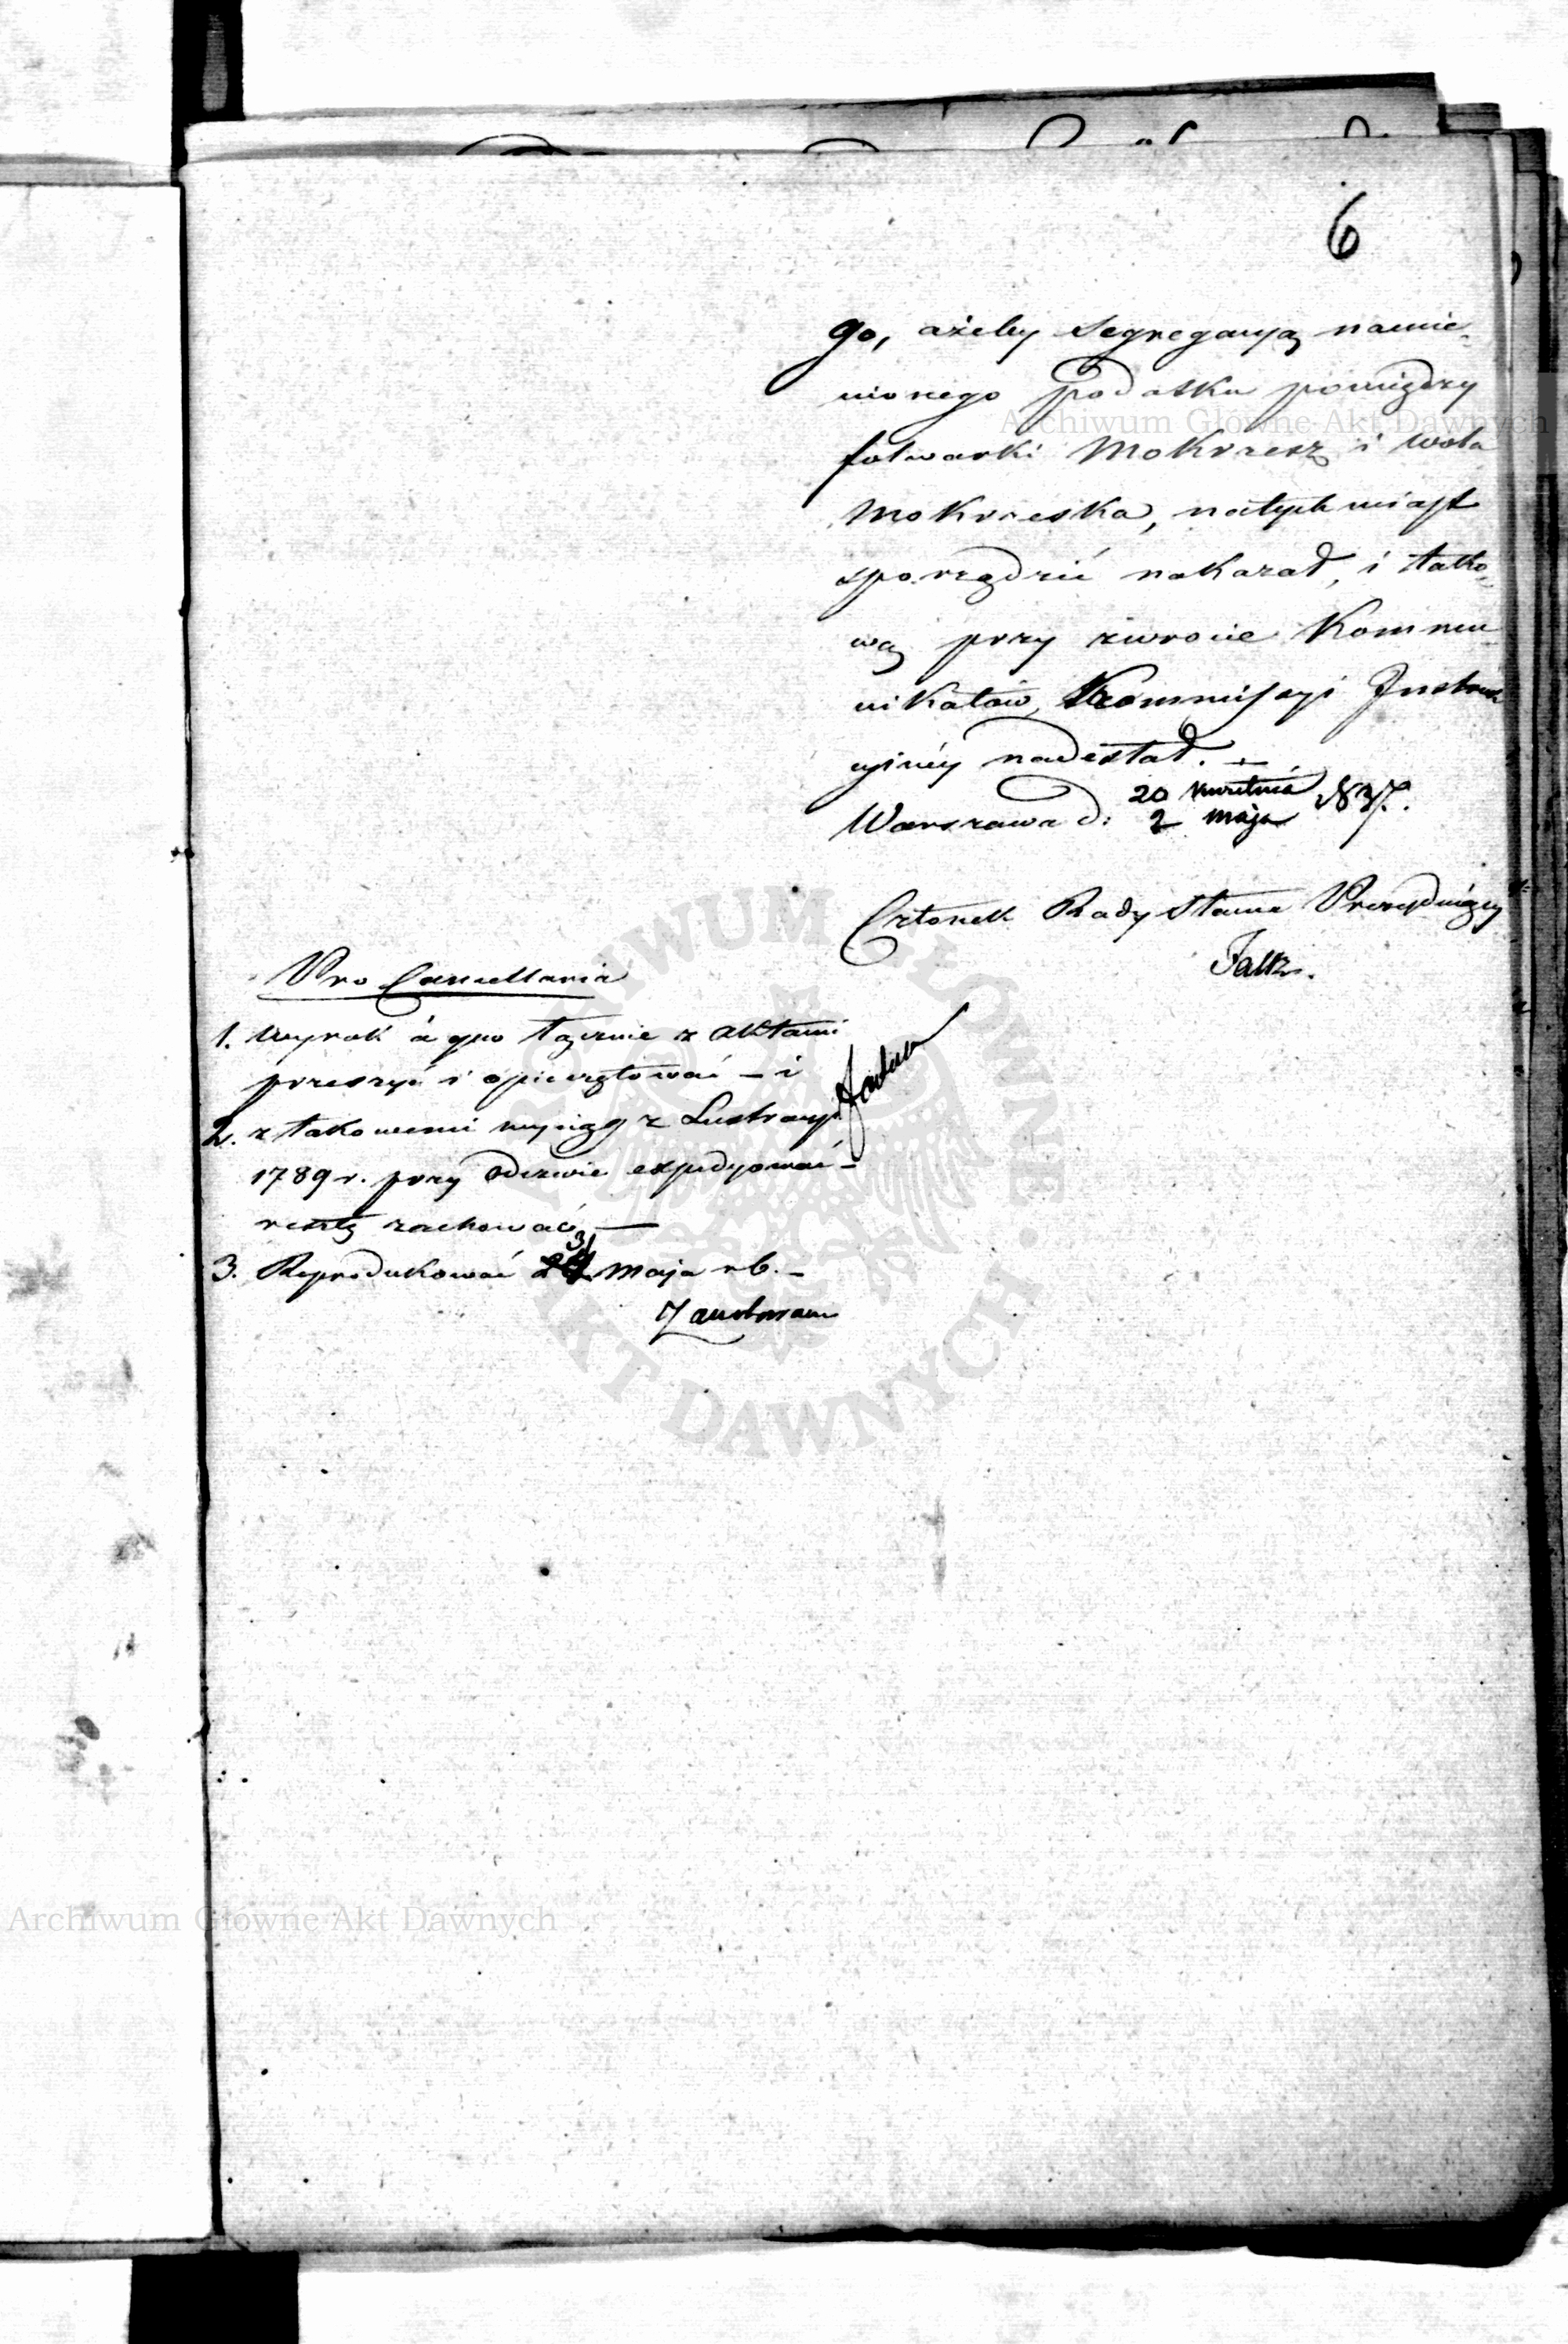 6
go, ażeby segregacyą namie-
nionego podatku pomiędzy
folwarki Mokrzesz i Wola
Mokrzeska, natychmiast
sporządzić nakazał, i tako-
wą przy zwrocie Kommu
nikatów, Kommissyi Instruk
cyjnéy nadesłał. —
Warszawa d: 20 kwietnia
2 maja 1837.
Członek Rady Stanu Prezydujący
Pro Cancellaria
1. Wyrok à quo łącznie z aktami
przeszyć i opieczętować – i
2. z takowemi wyciąg z Lustracyi
1789 r. przy odezwie expedyować –
resztę zachować, —
3. Reprodukować 31 Maja r b. –
Archiwum Główne Akt Dawnych
Archiwum Główne Akt Dawnych
ARCHIWUM GŁÓWNE AKT DAWNYCH